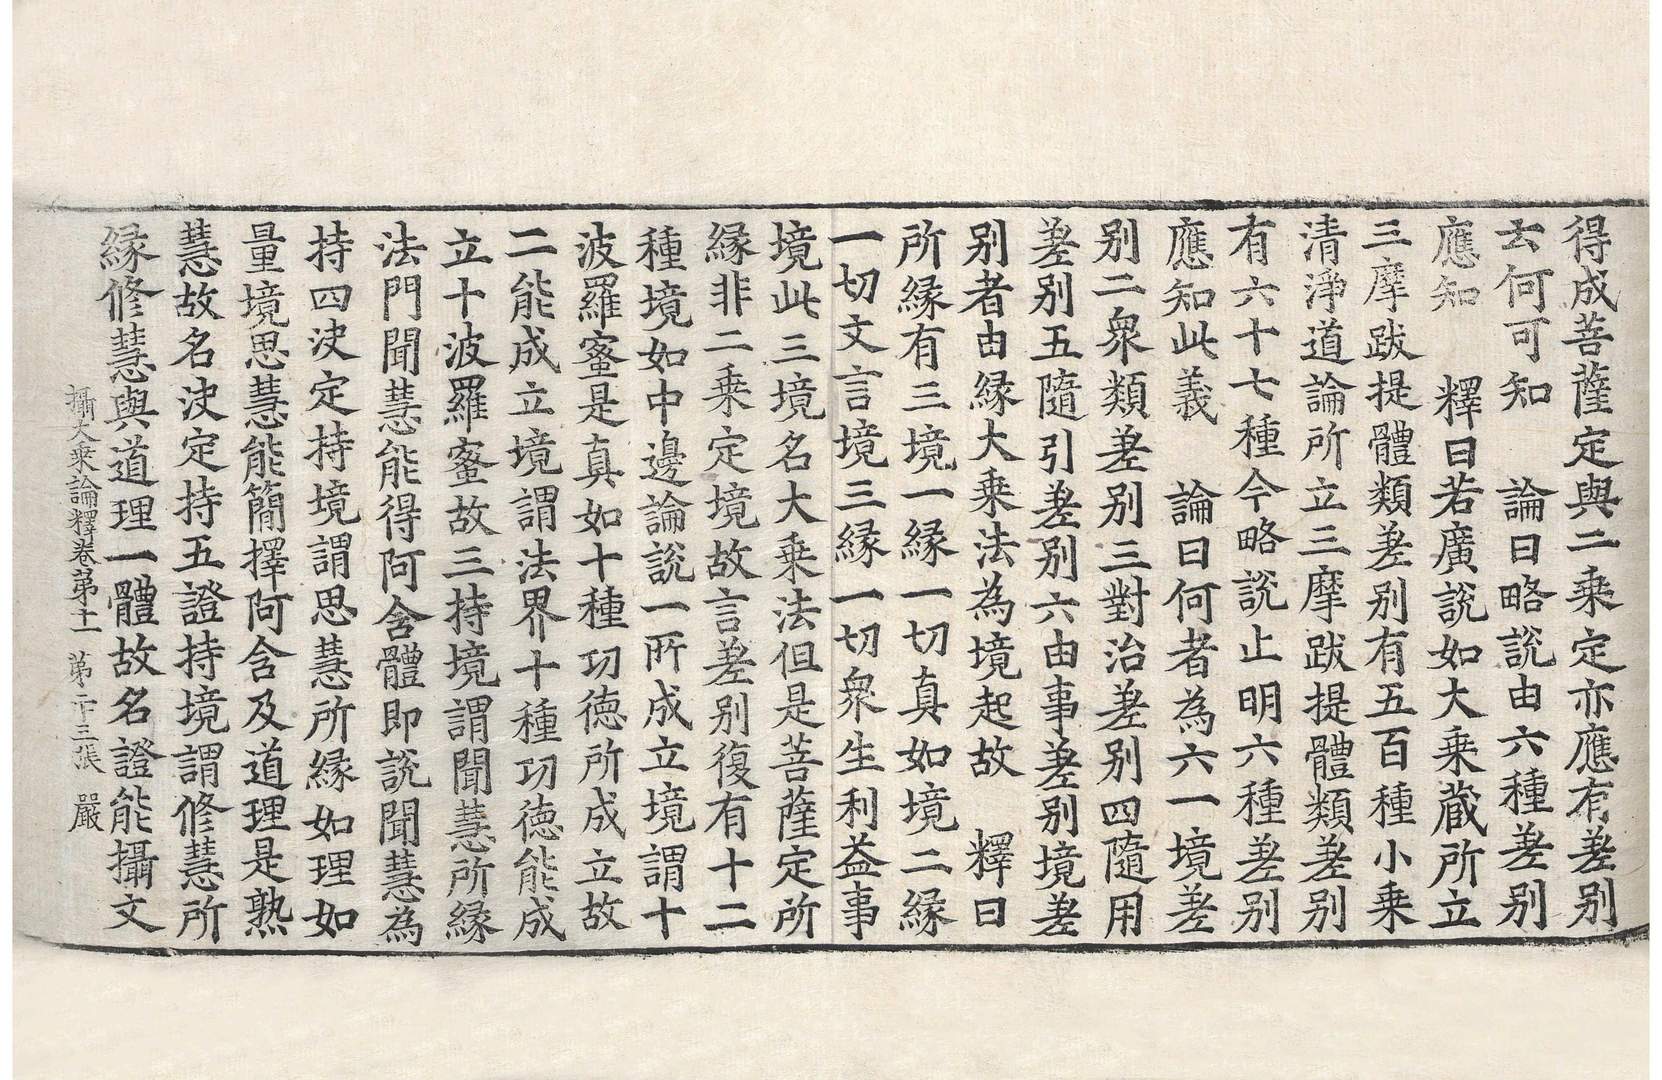 得成菩薩定與二乗定亦應有差別
云何可知　論曰略說由六種差別
應知　釋曰若廣說如大乗蔵所立
三摩跋提體類差別有五百種小乗
清淨道論所立三摩跋提體類差別
有六十七種今略說止明六種差別
應知此義　論曰何者為六一境差
別二衆類差別三對治差別四隨用
差別五隨引差別六由事差別境差
別者由緣大乗法為境起故　釋曰
所緣有三境一緣一切真如境二緣
一切文言境三緣一切衆生利益事
境此三境名大乗法但是菩薩定所
緣非二乗定境故言差別復有十二
種境如中邊論說一所成立境謂十
波羅蜜是真如十種功德所成立故
二能成立境謂法界十種功德能成
立十波羅蜜故三持境謂聞慧所緣
法門聞慧能得阿含體即說聞慧為
持四決定持境謂思慧所緣如理如
量境思慧能簡擇阿含及道理是熟
慧故名決定持五證持境謂修慧所
緣修慧與道理一體故名證能攝文
攝大乗論釋卷第十一　第二十三張　嚴